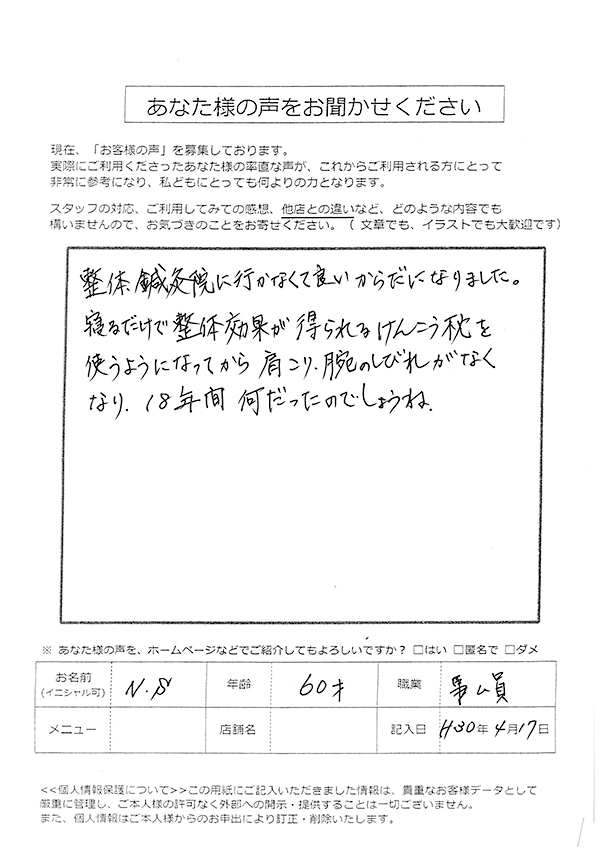 あなた様の声をお聞かせください
現在、「お客様の声」を募集しております。
実際にご利用くださったあなた様の率直な声が、これからご利用される方にとって
非常に参考になり、私どもにとっても何よりの力となります。
スタッフの対応、ご利用してみての感想、他店との違いなど、どのような内容でも
構いませんので、お気づきのことをお寄せください。（ 文章でも、イラストでも大歓迎です）
整体、鍼灸院に行かなくて良いからだになりました。
寝るだけで整体効果が得られるけんこう枕を
使うようになってから肩こり、腕のしびれがなく
なり、18年間何だったのでしょうね。
※ あなた様の声を、ホームページなどでご紹介してもよろしいですか？ □はい □匿名で □ダメ
お名前 N.S 年齢 60才 職業 事ム員
(イニシャル可)
メニュー 店舗名 記入日 H30年4月17日
<<個人情報保護について>>この用紙にご記入いただきました情報は、貴重なお客様データとして
厳重に管理し、ご本人様の許可なく外部への開示・提供することは一切ございません。
また、個人情報はご本人様からのお申出により訂正・削除いたします。